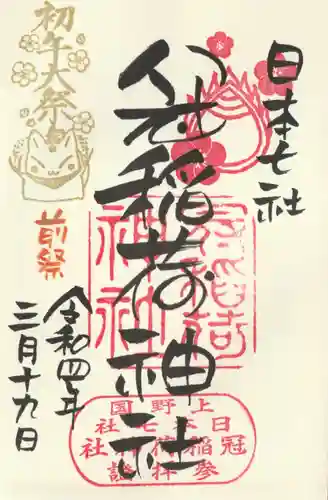 日本七社
冠稲荷神社
初午大祭
前祭
令和四年
三月十九日
冠稲荷
神社
上野国
日本七社
冠稲荷神社
參拝證